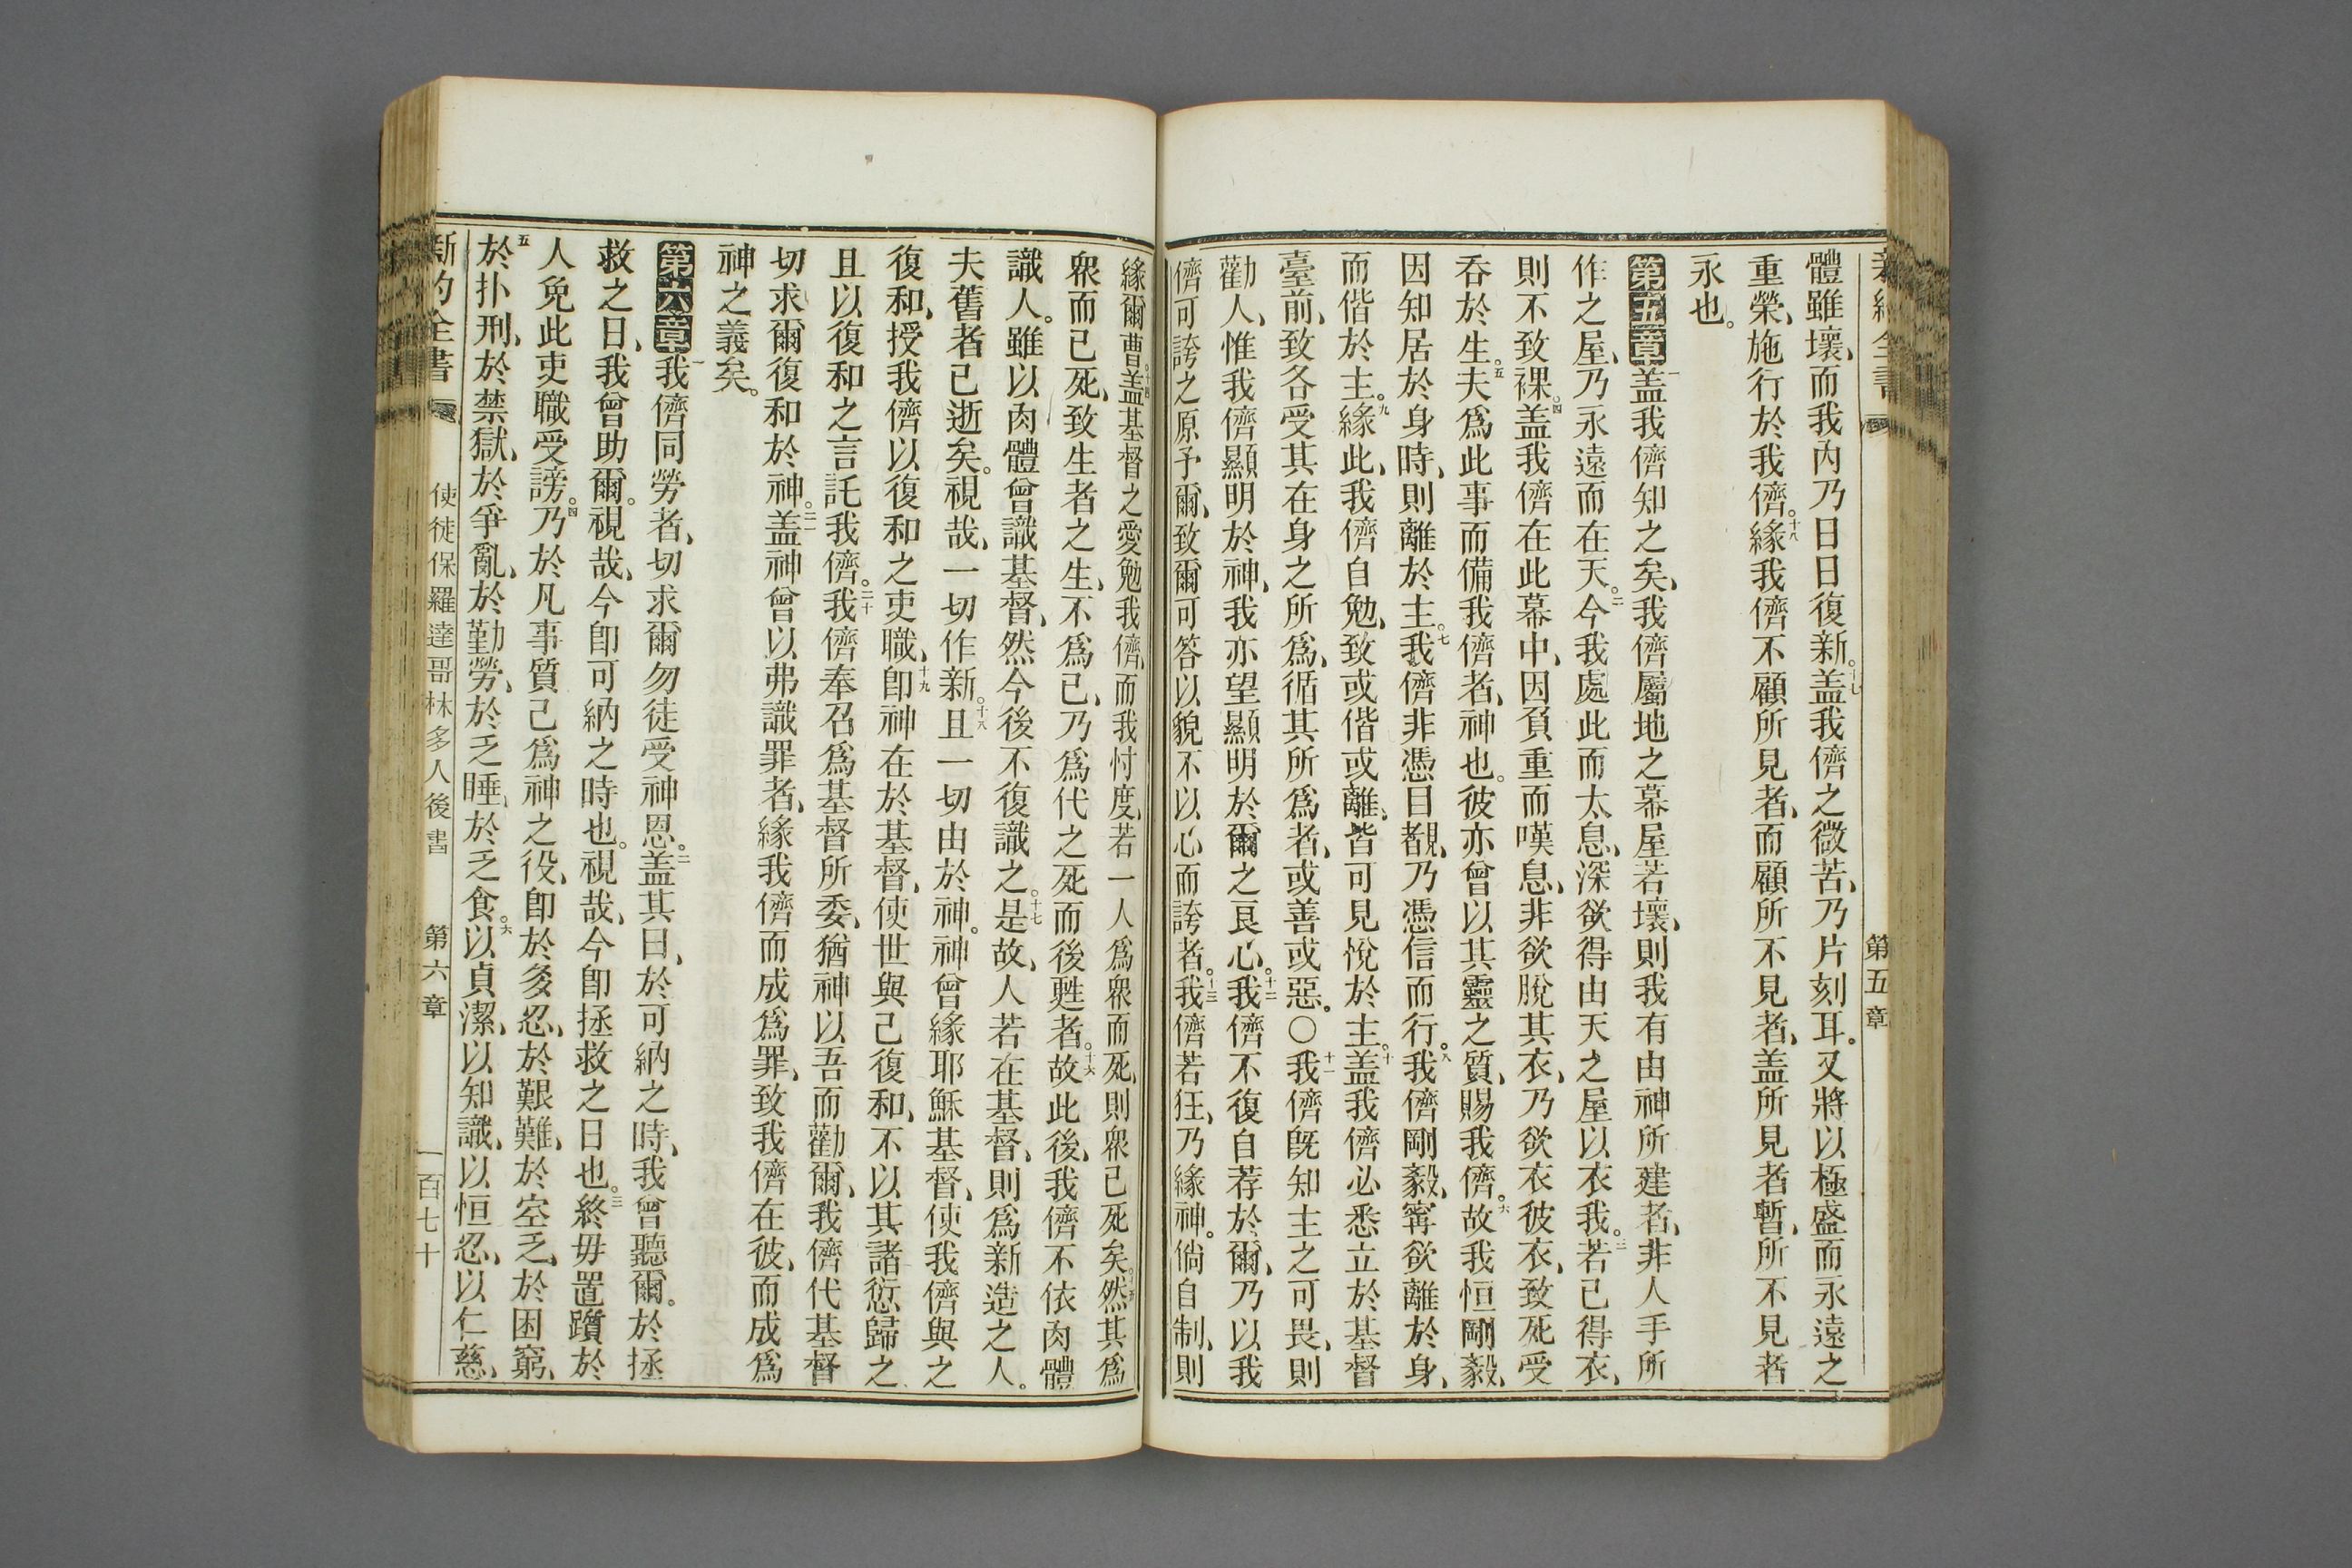 第五章
體雖壞、而我內乃日日復新。十七盖我儕之微苦、乃片刻耳。又將以極盛而永遠之
重榮、施行於我儕。十八緣我儕不顧所見者、而顧所不見者、盖所見者暫、所不見者
永也。
第五章一盖我儕知之矣、我儕屬地之幕屋若壞、則我有由神所建者、非人手所
作之屋、乃永遠而在天。二今我處此而太息、深欲得由天之屋以衣我。三若已得衣、
則不致裸。四盖我儕在此幕中、因負重而嘆息、非欲脫其衣、乃欲衣彼衣、致死受
吞於生。五夫爲此事而備我儕者、神也。彼亦曾以其靈之質、賜我儕。六故我恒剛毅、
因知居於身時、則離於主。七我儕非憑目覩、乃憑信而行。八我儕剛毅、寗欲離於身、
而偕於主。九緣此、我儕自勉、致或偕或離、皆可見悅於主。十盖我儕必悉立於基督
臺前、致各受其在身之所爲、循其所爲者、或善或惡。〇十一我儕旣知主之可畏、則
勸人、惟我儕顯明於神、我亦望顯明於爾之良心。十二我儕不復自荐於爾、乃以我
儕可誇之原予爾、致爾可答以貌不以心而誇者。十三我儕若狂、乃緣神。倘自制、則
緣爾曹。十四盖基督之愛勉我儕、而我忖度、若一人爲衆而死、則衆已死矣。十五然其爲
衆而已死、致生者之生、不爲己、乃爲代之死而後甦者。十六故此後、我儕不依肉體
識人。雖以肉體曾識基督、然今後不復識之。十七是故、人若在基督、則爲新造之人。
夫舊者已逝矣。視哉、一切作新。十八且一切由於神。神曾緣耶穌基督、使我儕與之
復和、授我儕以復和之吏職、十九卽神在於基督、使世與己復和、不以其諸愆歸之、
且以復和之言託我儕。二十我儕奉召爲基督所委、猶神以吾而勸爾、我儕代基督
切求爾復和於神。二一盖神曾以弗識罪者、緣我儕而成爲罪、致我儕在彼、而成爲
神之義矣。
第六章一我儕同勞者、切求爾勿徒受神恩。二盖其曰、於可納之時、我曾聽爾。於拯
救之日、我曾助爾。視哉、今卽可納之時也。視哉、今卽拯救之日也。三終毋置躓於
人免此吏職受謗。四乃於凡事質己爲神之役、卽於多忍、於艱難、於空乏、於困窮、
五於扑刑、於禁獄、於爭亂、於勤勞、於乏睡、於乏食。六以貞潔、以知識、以恒忍、以仁慈、
新約全書 使徒保羅達哥林多人後書 第六章 一百七十